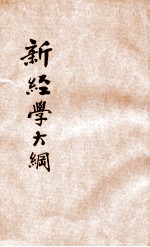 新經學大綱